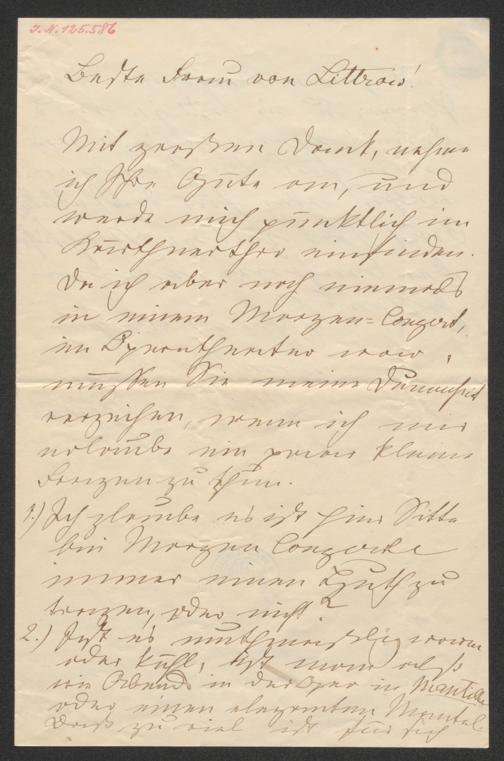 I.N. 125.586
Beste Frau von Littrow!
Mit großem Dank, nehme
ich Ihre Güte an, und
werde mich pünktlich im
Kärthnerthor einfinden.
Da ich aber noch niemals
in einem Morgen=Conzert,
im Operntheater war,
müssen Sie meine Dummheit
verzeihen, wenn ich mir
erlaube ein paar kleine
Fragen zu thun.
1.) Ich glaube es ist hier Sitte
bei Morgen Conzerte
immer einen Huth zu
tragen, oder nicht?
2.) Ist es muthmaßlig warm
oder kühl, ist man alß
wie Abends in der Oper in Mantille
oder einen eleganten Mantel
Daß zu viel ist für sich